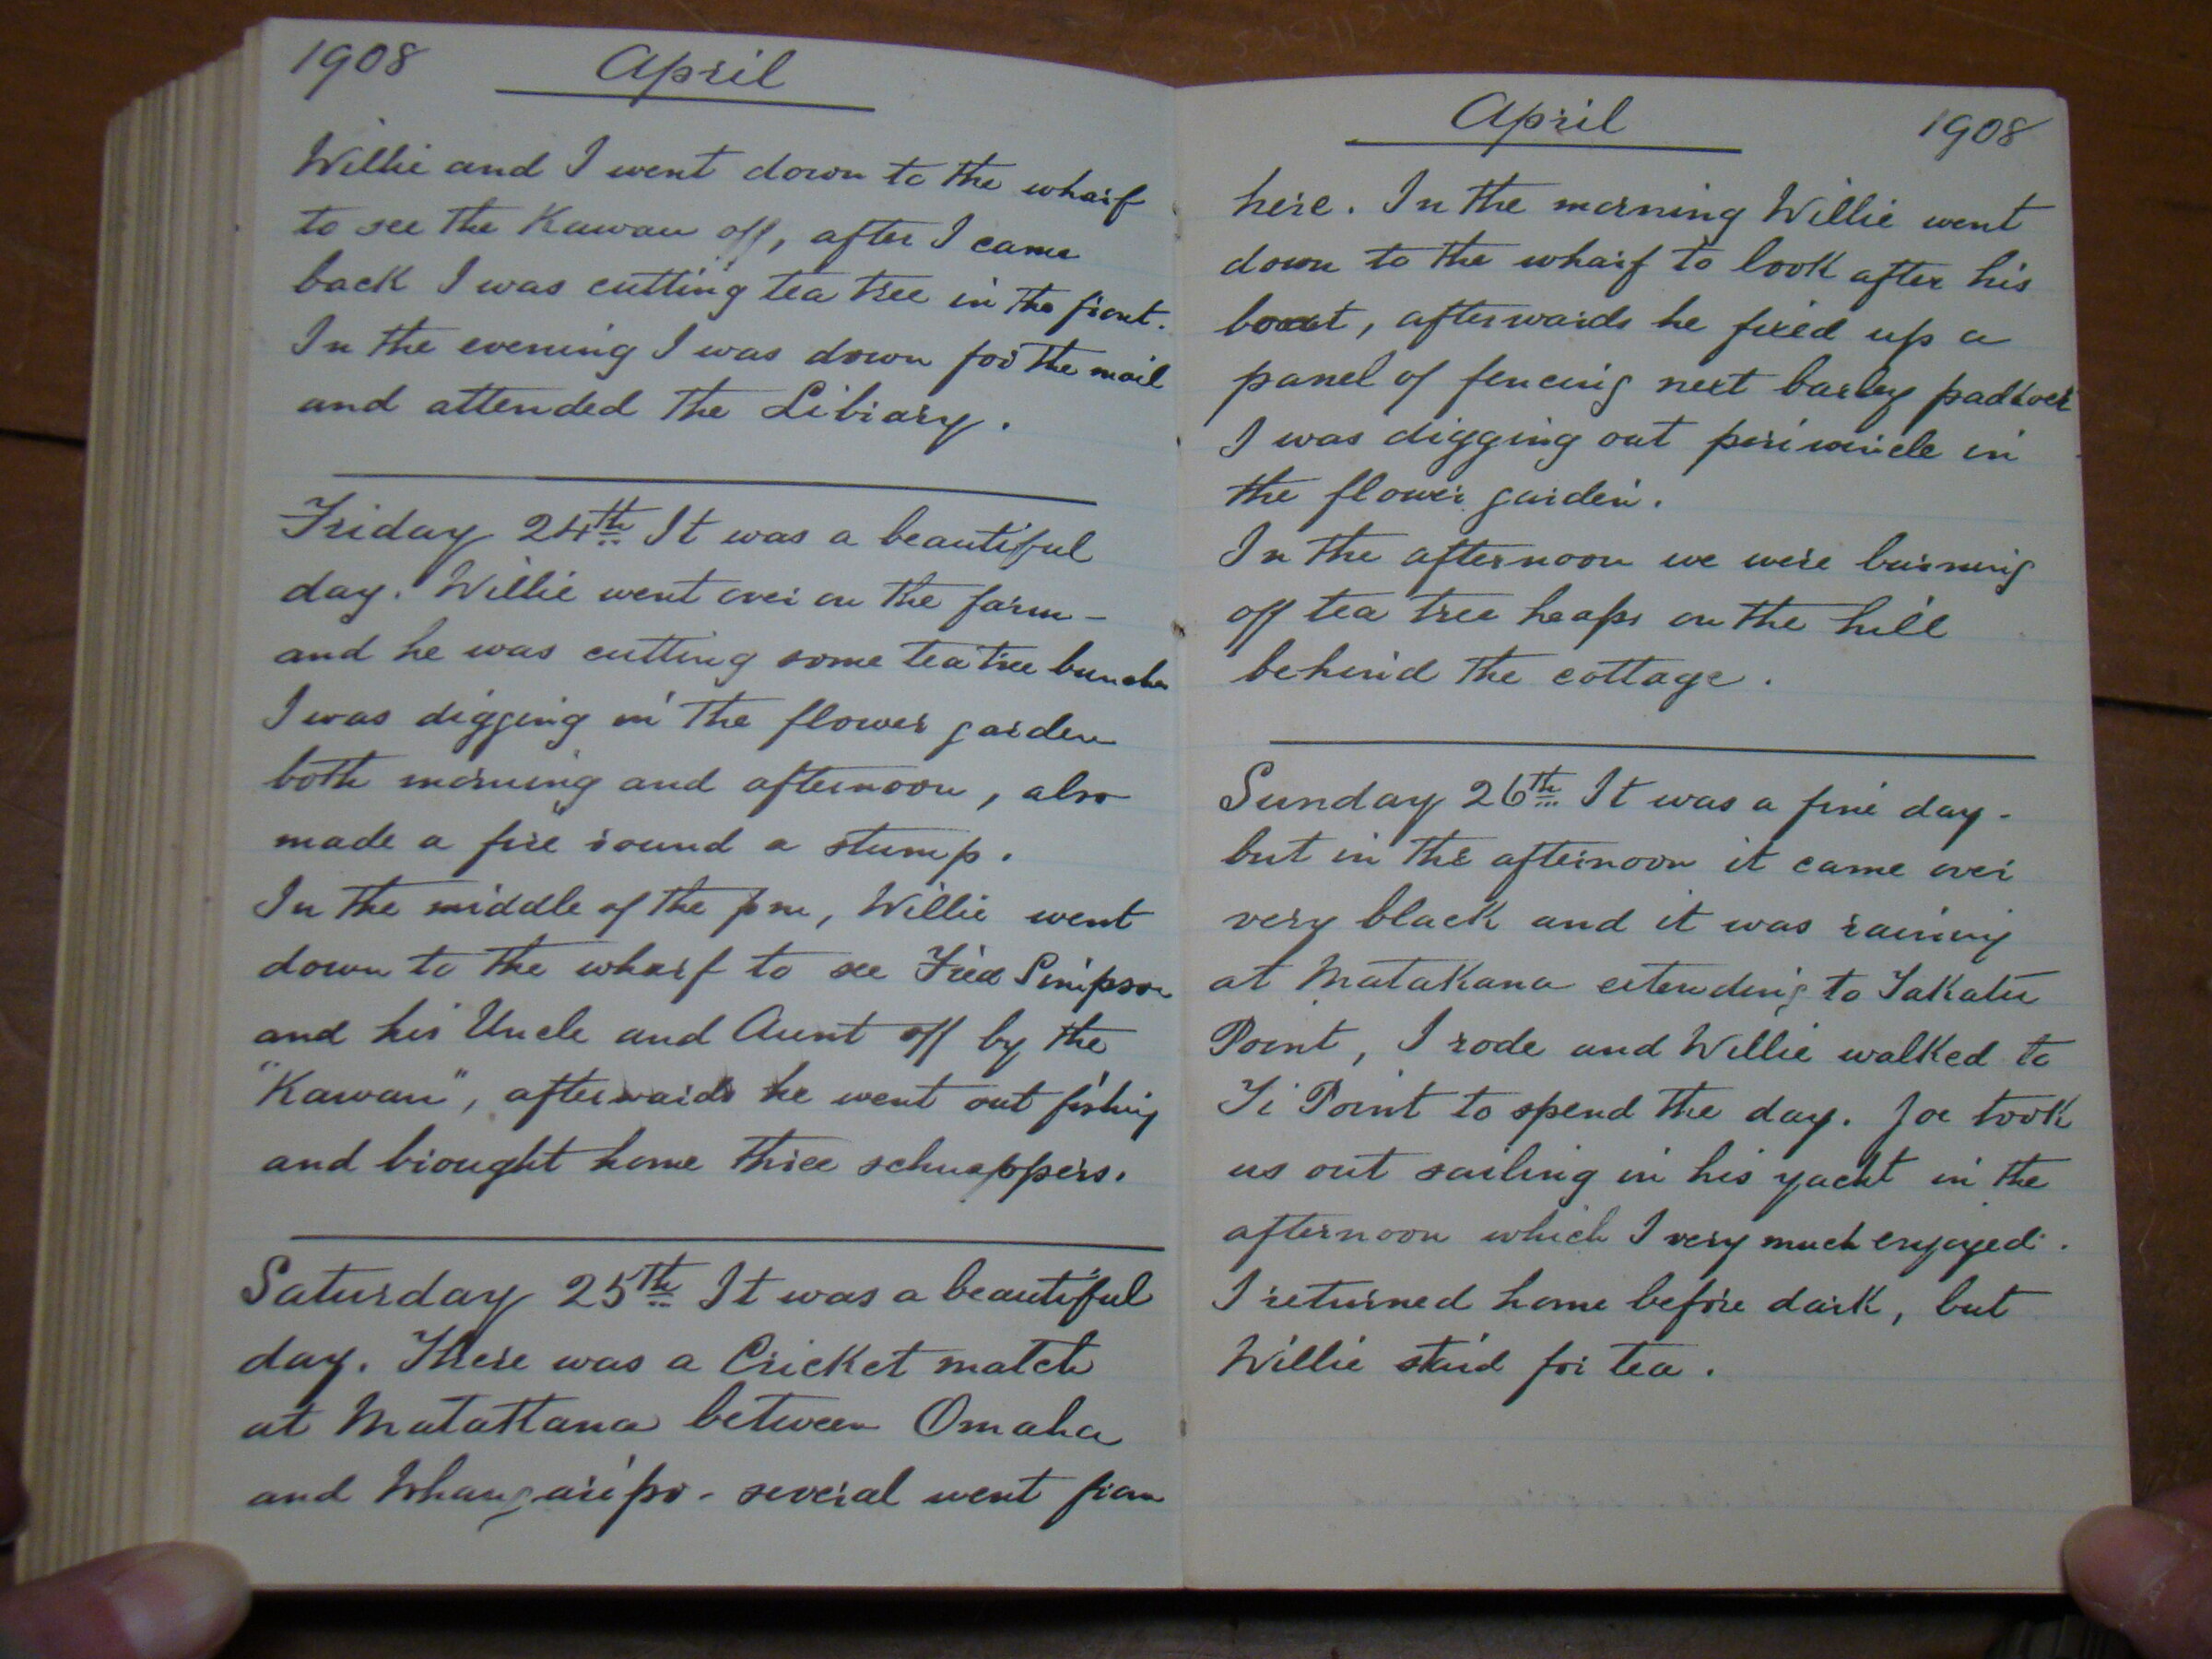 1908 April
Willie and I went down to the wharf
to see the Kawau off, after I came
back I was cutting tea tree in the front.
In the evening I was down for the mail
and attended the Library.
Friday 24th It was a beautiful
day. Willie went over on the farm -
and he was cutting some tea tree bunches
I was digging in the flower garden
both morning and afternoon, also
made a fire round a stump.
In the middle of the pm, Willie went
down to the wharf to see Fred Simpson
and his Uncle and Aunt off by the
"Kawau", afterwards he went out fishing
and brought home three schnappers.
Saturday 25th It was a beautiful
day. There was a Cricket match
at Matakana between Omaha
and Whangaripo - several went from
April 1908
here. In the morning Willie went
down to the wharf to look after his
boat, afterwards he fixed up a
panel of fencing next barley paddock
I was digging out periwincle in
the flower garden.
In the afternoon we were burning
off tea tree heaps on the hill
behind the cottage.
Sunday 26th It was a fine day.
but in the afternoon it came over
very black and it was raining
at Matakana extending to Takatu
Point, I rode and Willie walked to
Ti Point to spend the day. Joe took
us out sailing in his yacht in the
afternoon which I very much enjoyed.
I returned home before dark, but
Willie staid for tea.